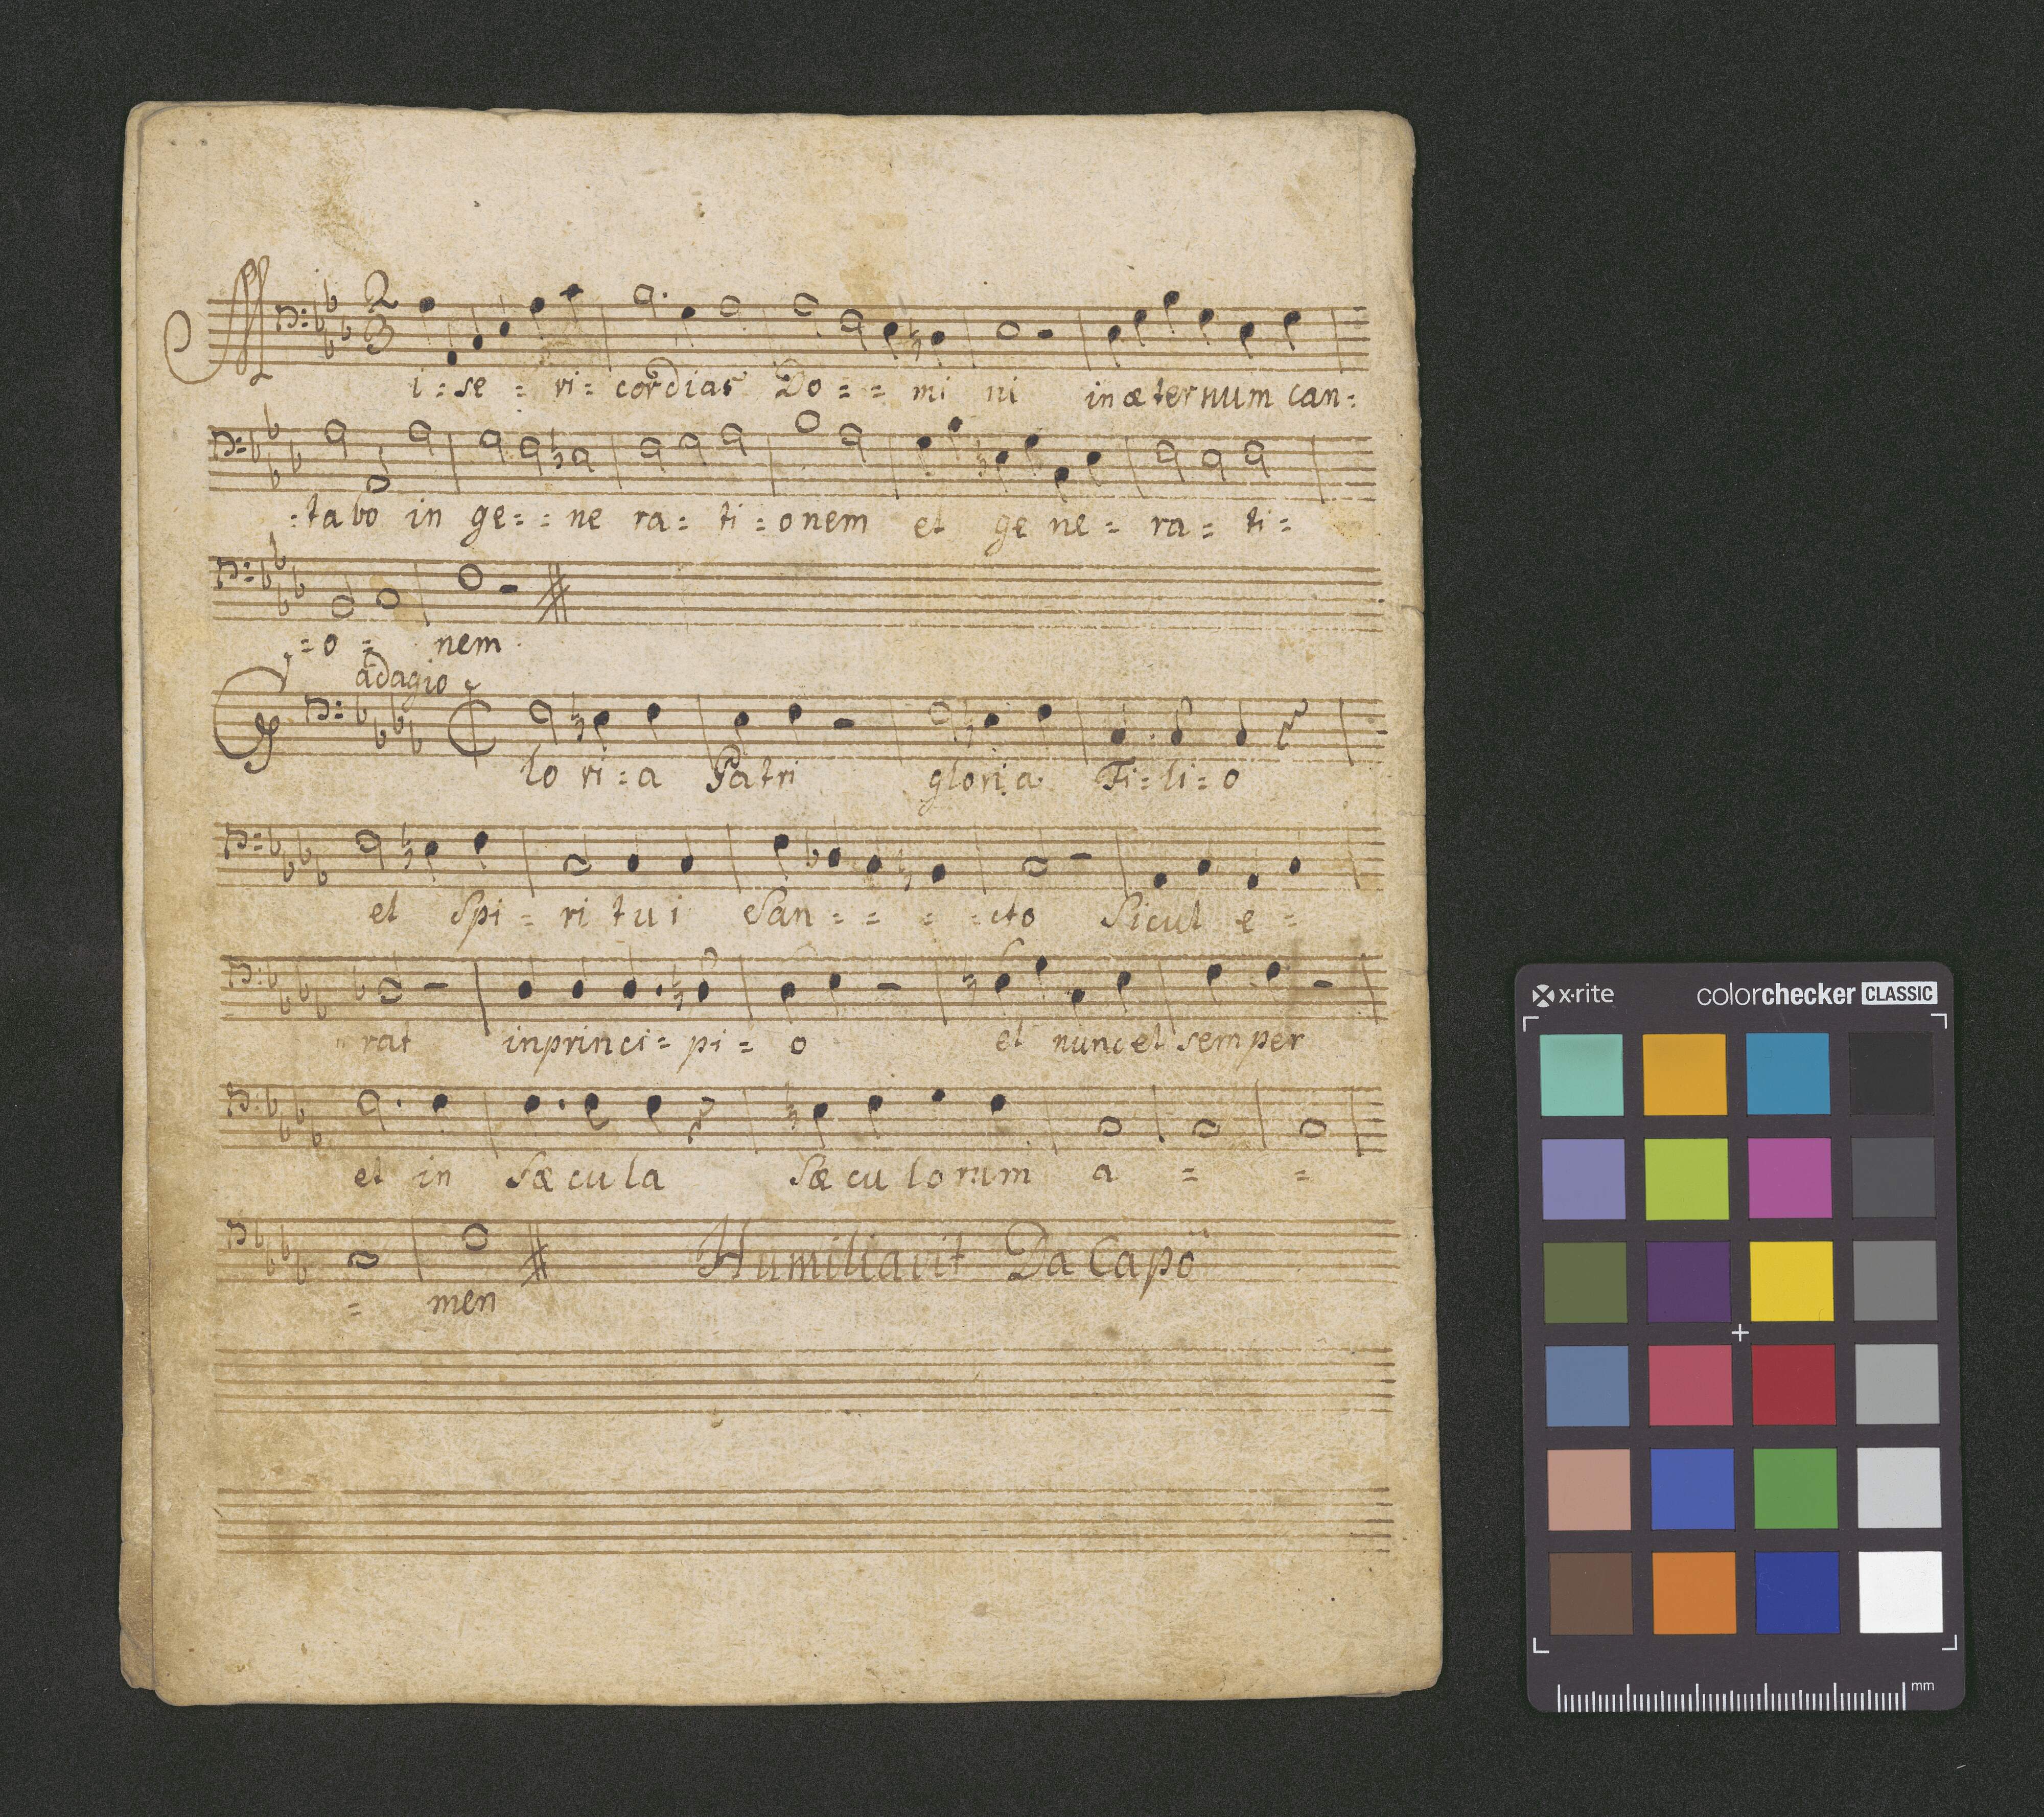 Mi=se = ri= cordias Do= = mi ni in æternum can=
=tabo in ge= = ne ra= ti=onem et ge ne= ra= ti=
=o = nem
adagio
Glo ri=a Patri gloria Fi=li=o
et Spi = ri tu i San= = = =cto Sicut e =
rat in princi= pi= o et nunc et semper
et in sæ cu la sæ cu lo rum a = =
= men
Humiliavit Da Capo
x·rite colorchecker CLASSIC
mm